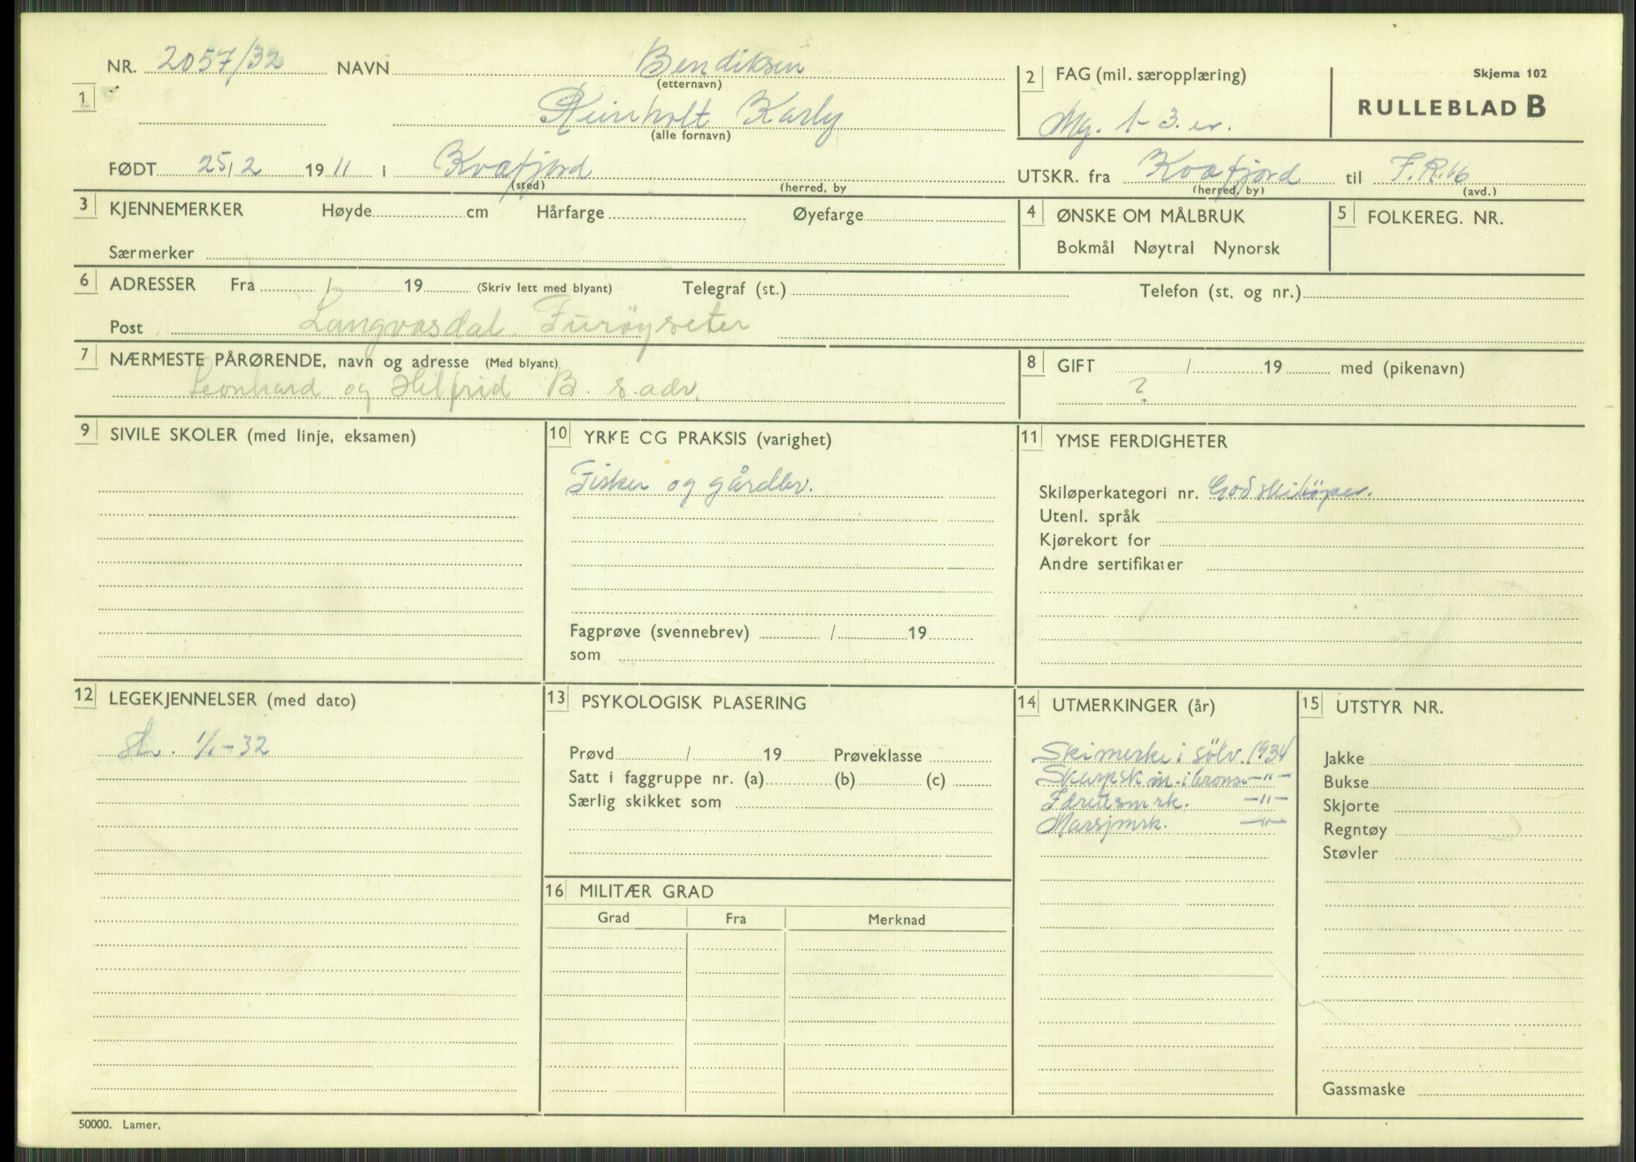 NR. 2057/32 NAVN Bendiksen
(etternavn)
1
Reinholt Karly
(alle fornavn)
FØDT 25/2 1911 i Kvæfjord
(sted) (herred, by
2 FAG (mil. særopplæring)
Mg. 1-3. er.
Skjema 102
RULLEBLAD B
UTSKR. fra Kvæfjord til F.R.16
(herred, by) (avd.)
3 KJENNEMERKER Høyde cm Hårfarge Øyefarge
Særmerker
4 ØNSKE OM MÅLBRUK
Bokmål Nøytral Nynorsk
5 FOLKEREG. NR.
6 ADRESSER Fra / 19 (Skriv lett med blyant) Telegraf (st.) Telefon (st. og nr.)
Post Langvasdal Furøyseter
7 NÆRMESTE PÅRØRENDE, navn og adresse (Med blyant)
Leonhard og Helfrid B. s.adr.
8 GIFT / 19 med (pikenavn)
?
9 SIVILE SKOLER (med linje, eksamen)
10 YRKE CG PRAKSIS (varighet)
Fisker og gårdbr.
Fagprøve (svennebrev) / 19
som
11 YMSE FERDIGHETER
Skiløperkategori nr. God skiløper.
Utenl. språk
Kjørekort for
Andre sertifikater
12 LEGEKJENNELSER (med dato)
1/1-32
13 PSYKOLOGISK PLASERING
Prøvd / 19 Prøveklasse
Satt i faggruppe nr. (a) (b) (c)
Særlig skikket som
14 UTMERKINGER (år)
Skimerke i sølv. 1934
Skarpsk.m. i bronse -"-
Idrettsmrk. -"-
Marsjmrk. -"-
15 UTSTYR NR.
Jakke
Bukse
Skjorte
Regntøy
Støvler
Gassmaske
16 MILITÆR GRAD
Grad Fra Merknad
50000. Lamer.